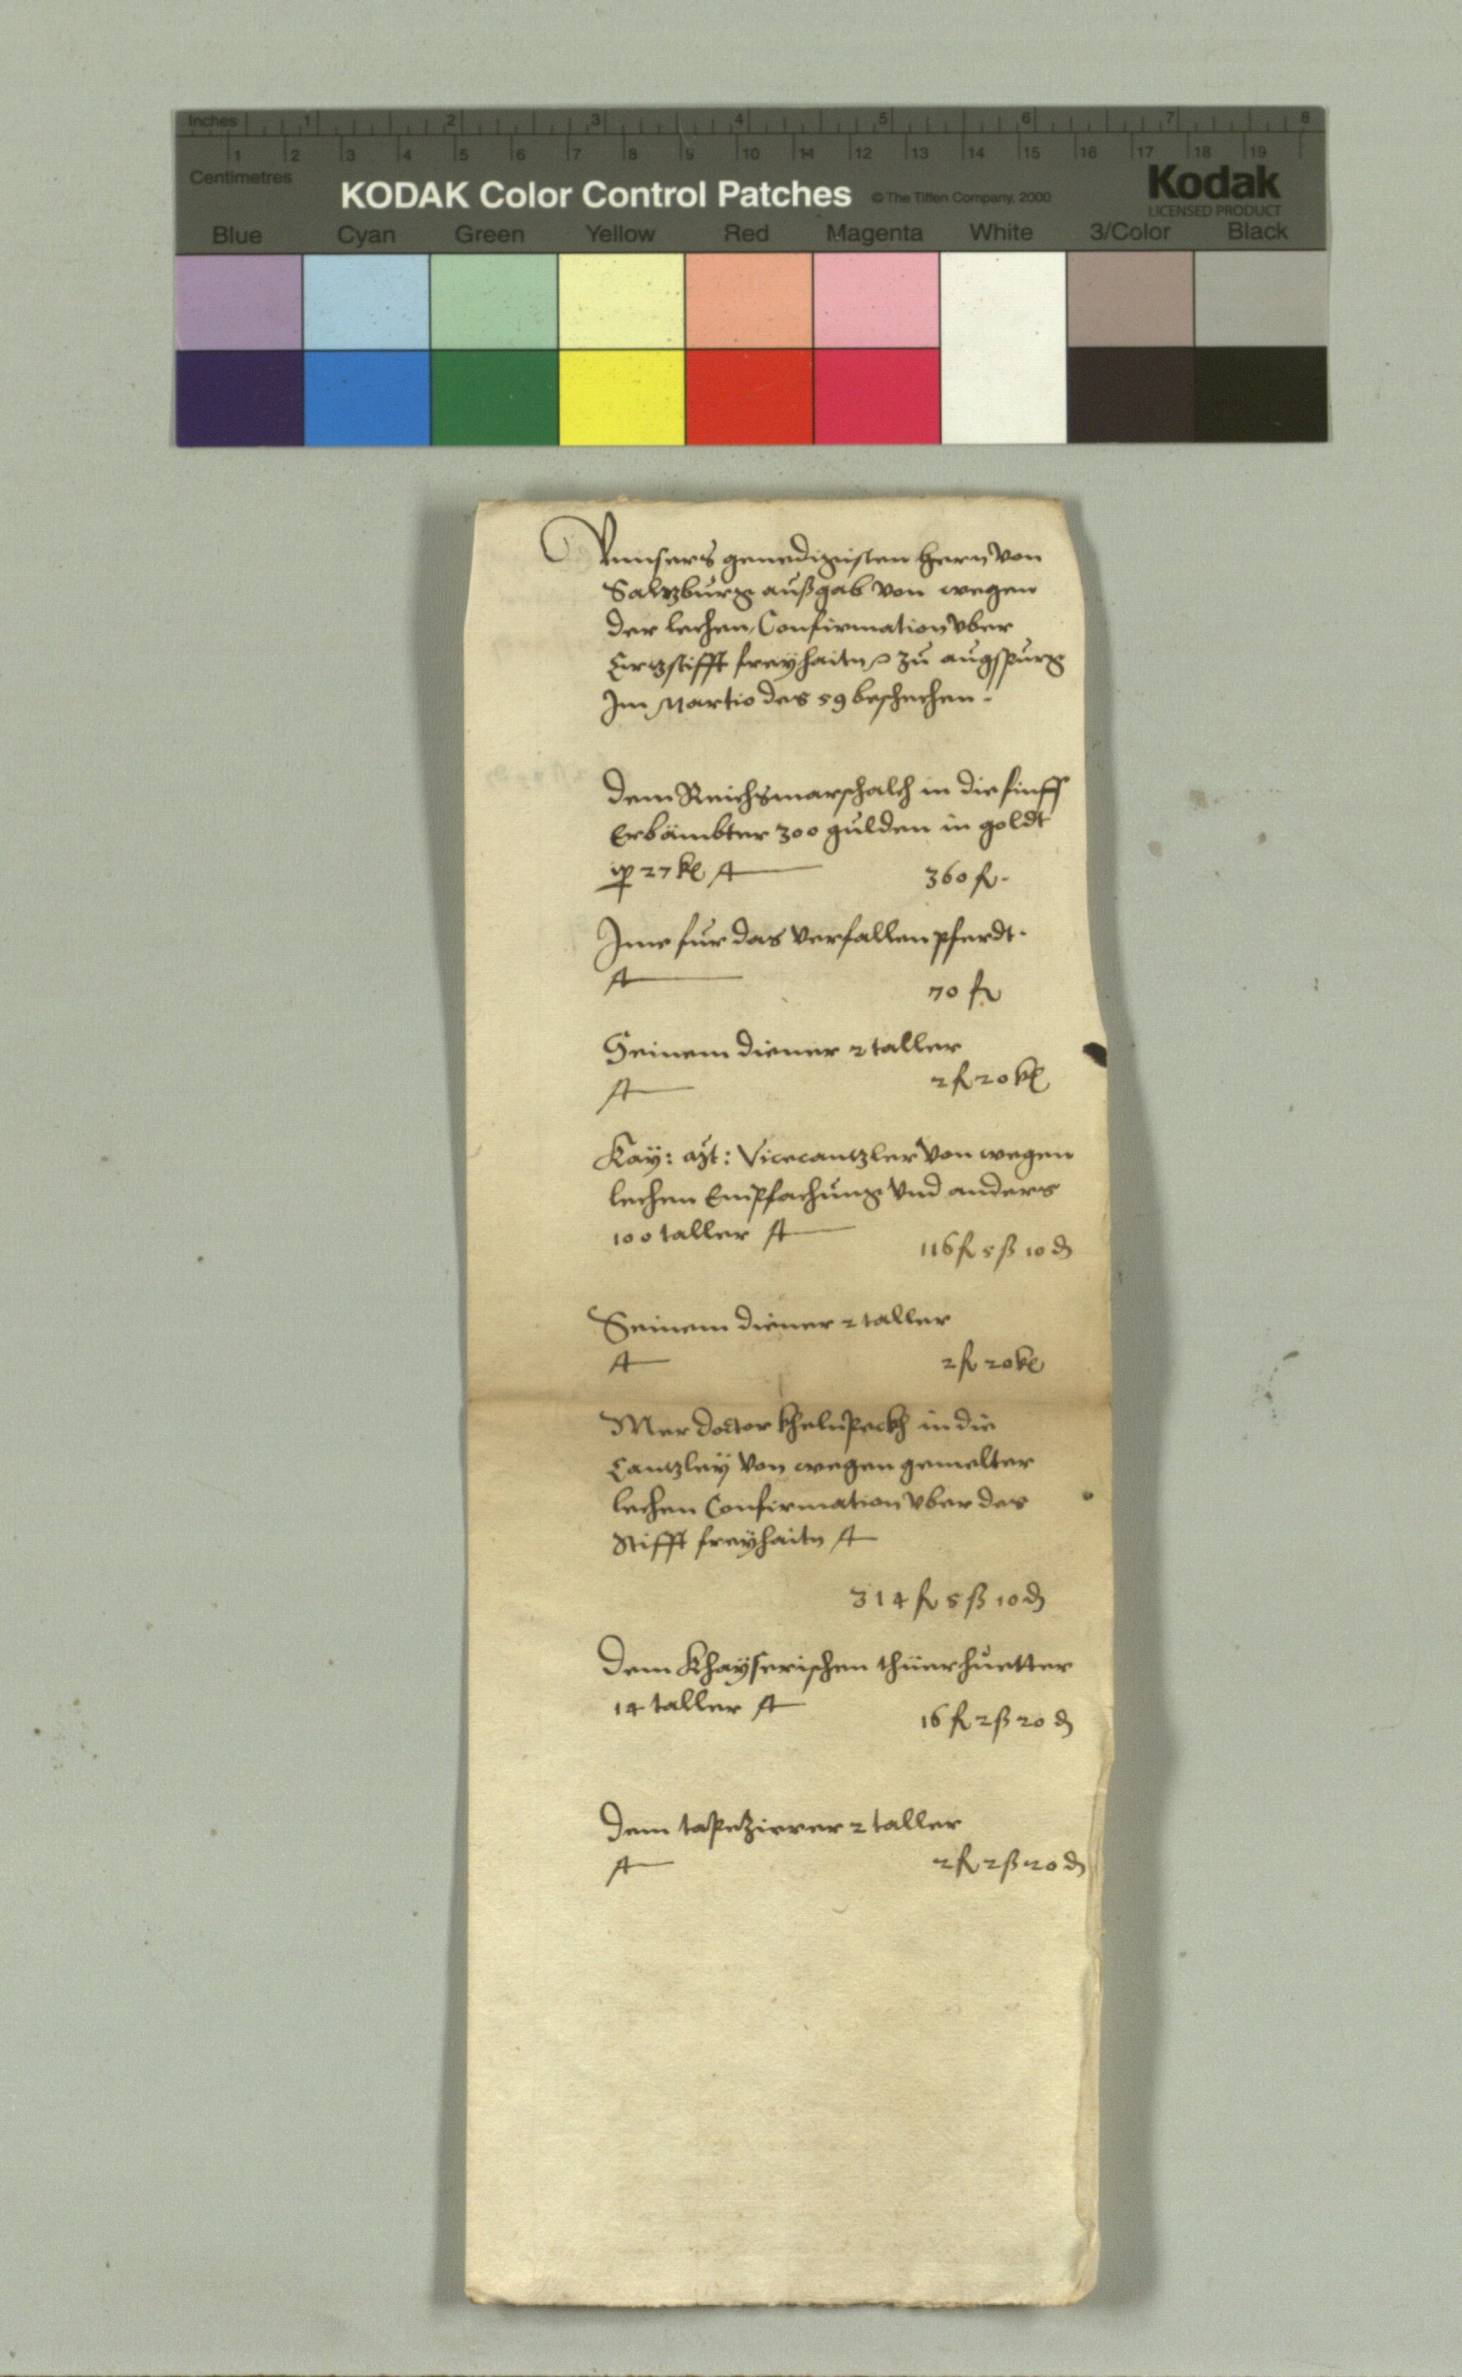 Inches 1 2 3 4 5 6 7 8
1 2 3 4 5 6 7 8 9 10 14 12 13 14 15 16 17 18 19
Centimetres
KODAK Color Control Patches © The Tiffen Company, 2000 Kodak
LICENSED PRODUCT
Blue Cyan Green Yellow Red Magenta White 3/Color Black
Vnnsers genedigisten hern von
Saltzburg außgab von wegen
der lechen, Confirmation vber
Ertzstifft freyhaitn zu augspurg
Im Martio des 59 beschechen.
dem Reichsmarschalch in die finff
Erbämbter 300 gulden in goldt
27 kr 360 fl.
Ime fur das verfallen pferdt.
70 fl
Seinem diener 2 taller
2 fl 20 kr
Kay: Mt: Vicecantzler von wegen
lechen Empfachung vnd anders
100 taller 116 fl 5 ß 10 d
Seinem diener 2 taller
2 fl 20 kr
Mer doctor in die
Cantzley von wegen gemelter
lechen Confirmation vber des
Stifft freyhaitn
314 fl 5 ß 10 d
dem Khayserischen thüerhuetter
14 taller 16 fl 2 ß 20 d
dem tapezierer 2 taller
2 fl 2 ß 20 d